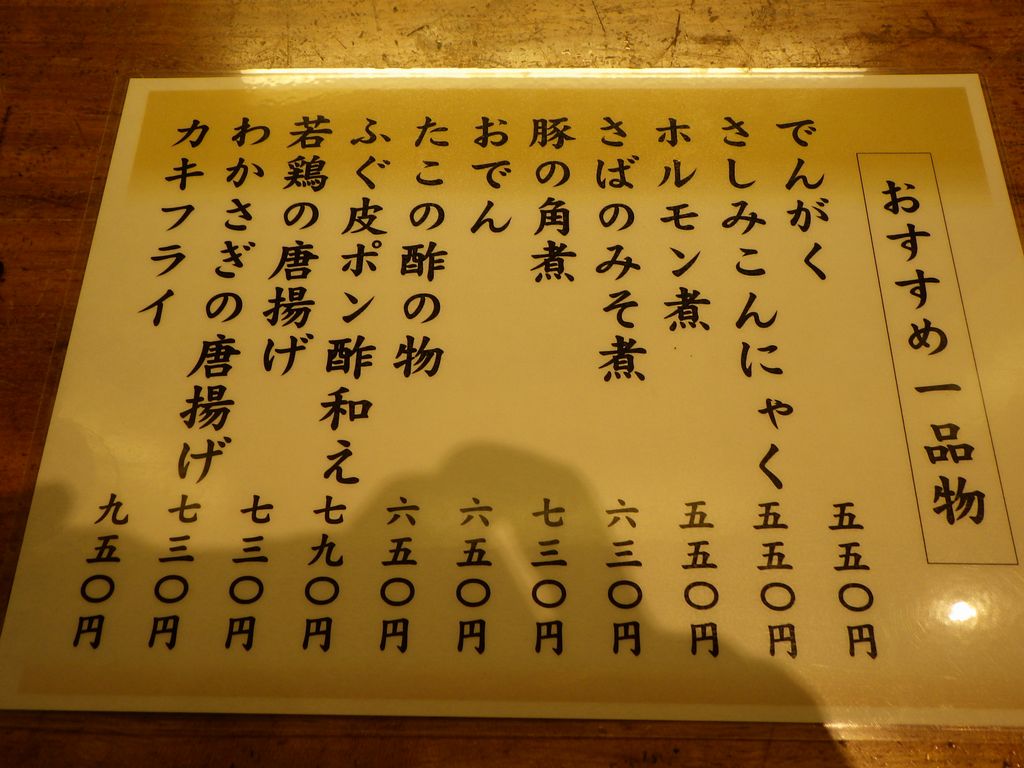 おすすめ一品物
でんがく 五五〇円
さしみこんにゃく 五五〇円
ホルモン煮 五五〇円
さばのみそ煮 六三〇円
豚の角煮 七三〇円
おでん 六五〇円
たこの酢の物 六五〇円
ふぐ皮ポン酢和え 七九〇円
若鶏の唐揚げ 七三〇円
わかさぎの唐揚げ 七三〇円
カキフライ 九五〇円